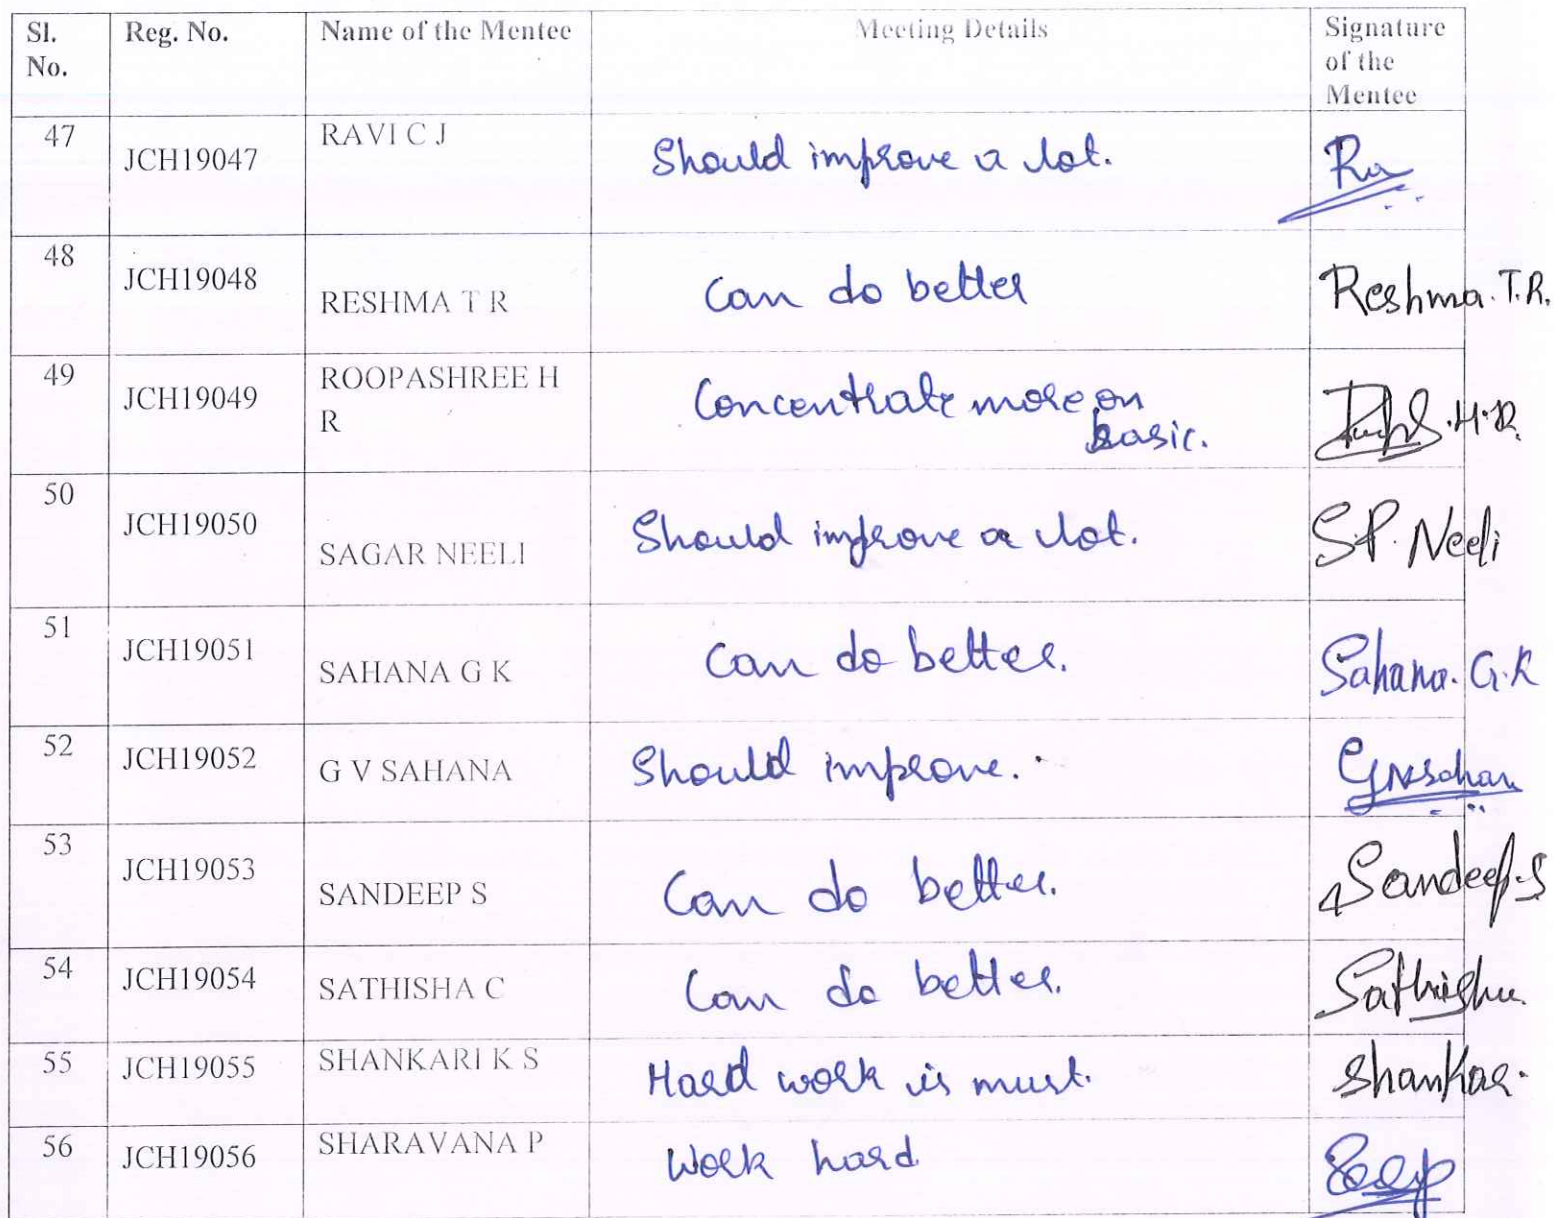 Sl. No. Reg. No. Name of the Mentee Meeting Details Signature of the Mentee
47 JCH19047 RAVI C J Should improve a lot.
48 JCH19048 RESHMA T R Can do better Reshma. T.R.
49 JCH19049 ROOPASHREE H R Concentrate more on basic. H.R.
50 JCH19050 SAGAR NEELI Should improve a lot. S.P. Neeli
51 JCH19051 SAHANA G K Can do better. Sahana. G.K
52 JCH19052 G V SAHANA Should improve.
53 JCH19053 SANDEEP S Can do better. Sandeep.S
54 JCH19054 SATHISHA C Can do better. Sathisha.
55 JCH19055 SHANKARI K S Hard work is must. Shankar.
56 JCH19056 SHARAVANA P Work hard